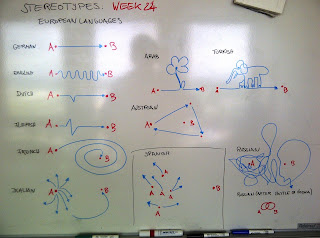 STEREOTYPES: WEEK 24
EUROPEAN LANGUAGES
GERMAN A B
ENGLISH A B
DUTCH A B
A B
A B
A B
ARAB
A B
TURKISH
A B
AUSTRIAN
A B
SPANISH
A A A A B
RUSSIAN
A B
RUSSIAN (AFTER BOTTLE OF VODKA)
A B